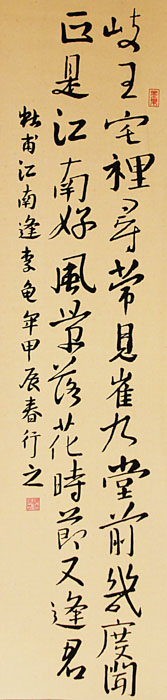 岐王宅裡尋常見崔九堂前幾度聞
正是江南好風景落花時節又逢君
杜甫江南逢李龜年甲辰春行之